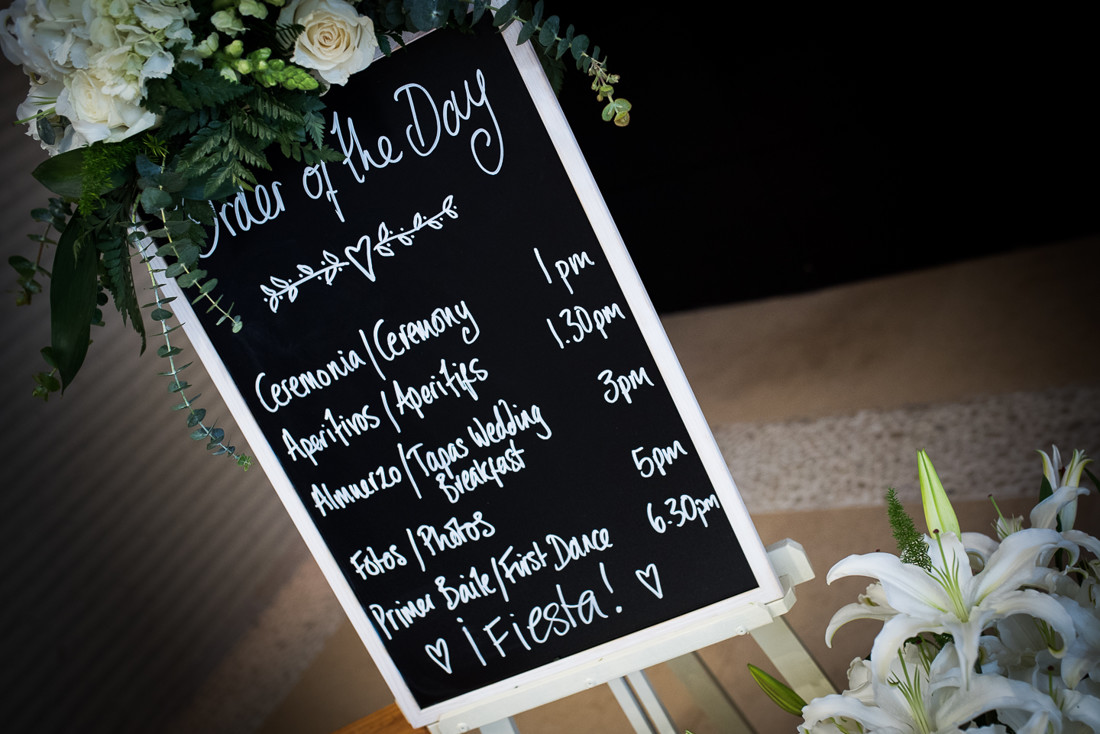 Order of the Day
Ceremonia / Ceremony 1pm
Aperitivos / Aperitifs 1.30pm
Almuerzo / Tapas Wedding 3pm
Breakfast
Fotos / Photos 5pm
Primer Baile / First Dance 6.30pm
¡Fiesta!